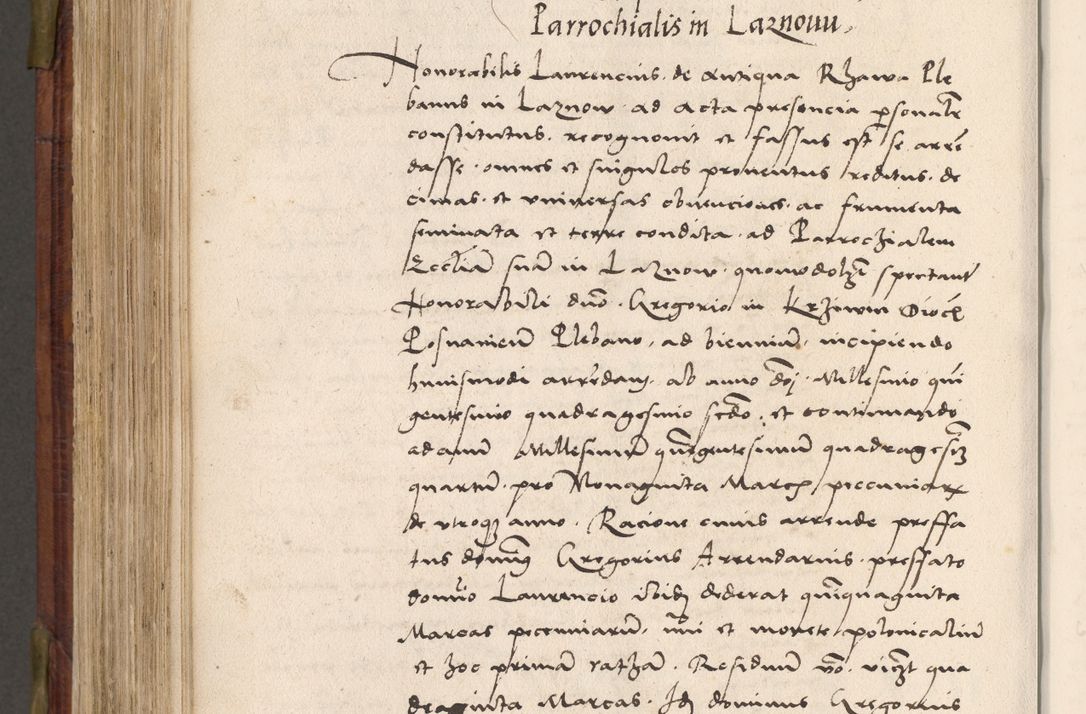 Parrochialis in Laznouu.
Honorabilis Laurencius de Antiqua Rzawa Ple
banus in Laznow ad acta presencia psonalr
constitutus. recognouit et fassus est se arrē
dasse omnes et singulos prouentus reditus de
cimas et vniuersas obuenciones ac frumenta
seminata et terre condita ad Parrochialem
Eccliā suā in Laznow quomodolzt spectant
Honorabili dno Gregorio in Krziwin Dioc
Posnanien Plebano, ad bienniū, incipiendo
huiusmodi arrēdam ab anno dnj Millesimo qui
gentesimo quadragesimo scdo, et continuando
ad annū Millesimū quigentesimum quadragesim
quartū pro Nonaginta Marcis peccuniarum
de vtroq anno. Racione cuius arrende preffa
tus dominus Gregorius Arrendarius preffato
domino Laurencio ibidem dederat quinquaginta
Marcas peccuniarū, nūi et monete polonicaliū
et hoc primā rathā. Residuum vo. viczt qua
draginta Marcas. Idem dominus Gregorius